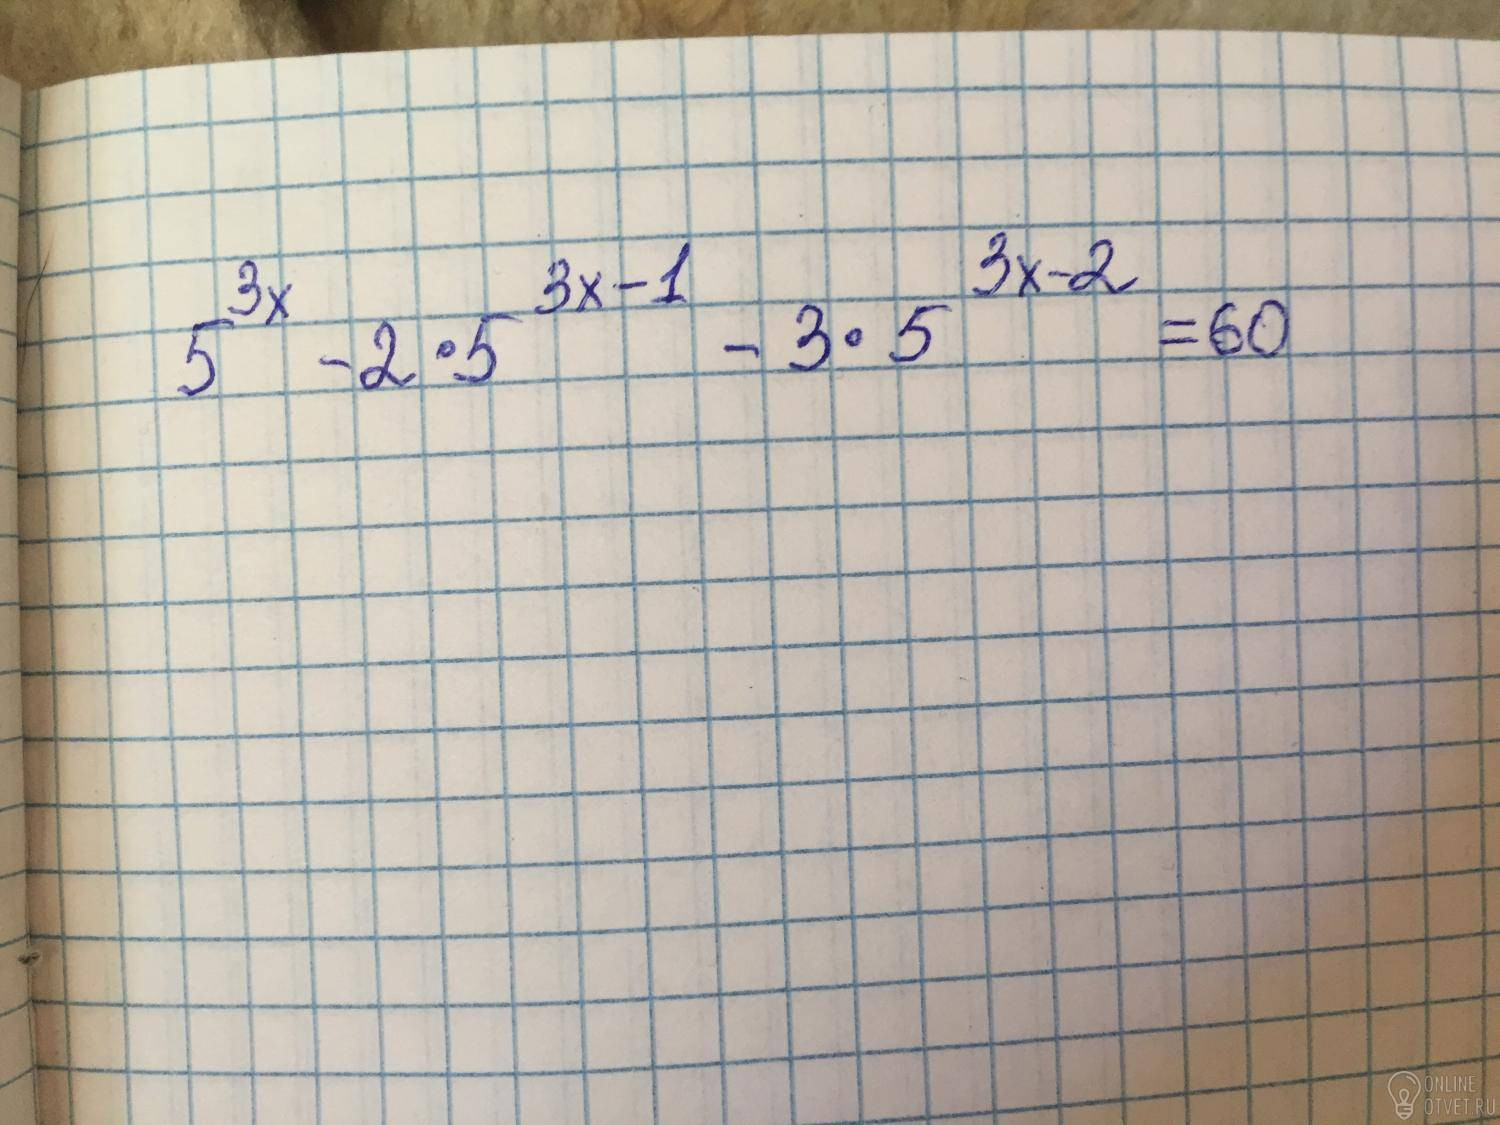 5^{3x} - 2 · 5^{3x-1} - 3 · 5^{3x-2} = 60
ONLINE
OTVET.RU